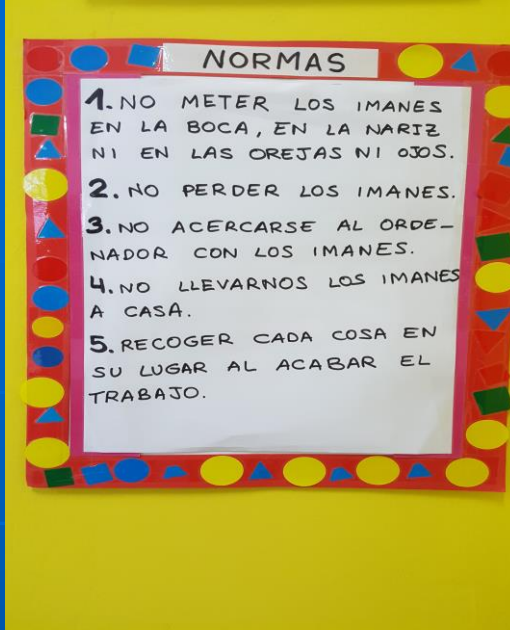 NORMAS
1. NO METER LOS IMANES
EN LA BOCA, EN LA NARIZ
NI EN LAS OREJAS NI OJOS.
2. NO PERDER LOS IMANES.
3. NO ACERCARSE AL ORDE-
NADOR CON LOS IMANES.
4. NO LLEVARNOS LOS IMANES
A CASA.
5. RECOGER CADA COSA EN
SU LUGAR AL ACABAR EL
TRABAJO.